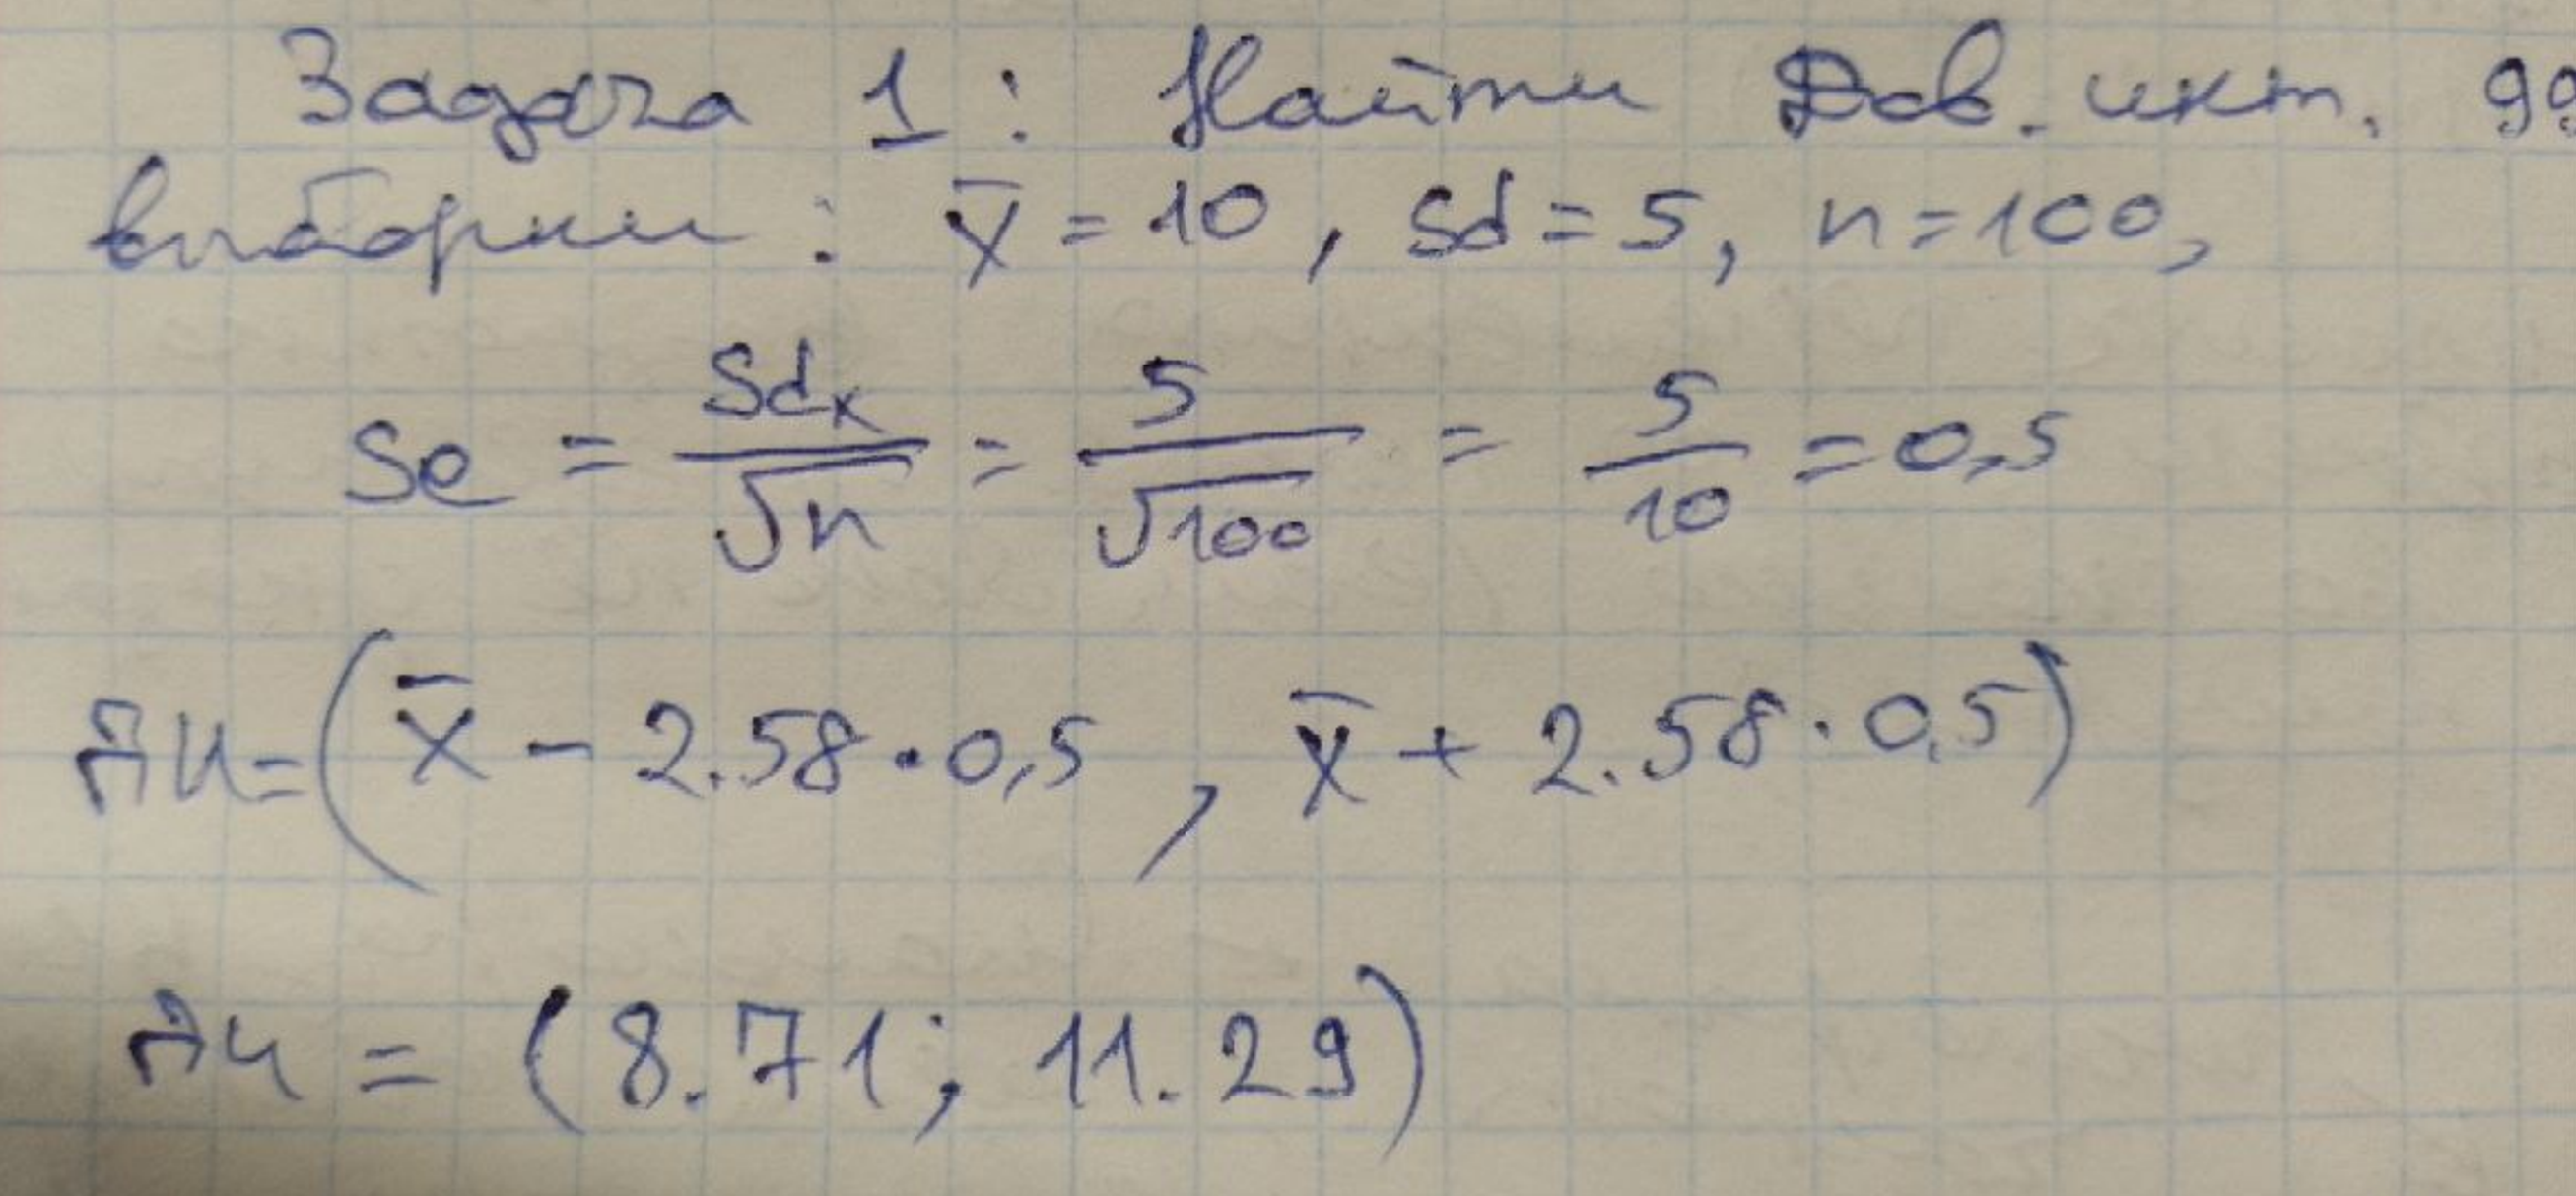 Задача 1: Найти Дов. инт. 99
выборки: x̄ = 10, sd = 5, n = 100,
se = sdₓ/√n = 5/√100 = 5/10 = 0,5
ДИ = (x̄ - 2.58 · 0,5, x̄ + 2.58 · 0,5)
ДИ = (8.71; 11.29)